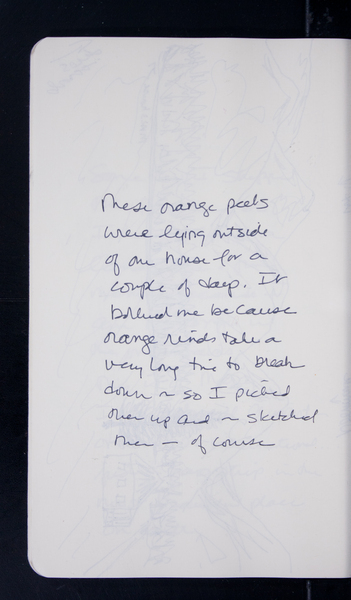 These orange peels
were lying outside
of our house for a
couple of days. It
bothered me because
orange rinds take a
very long time to break
down ~ so I picked
them up and ~ sketched
them — of course